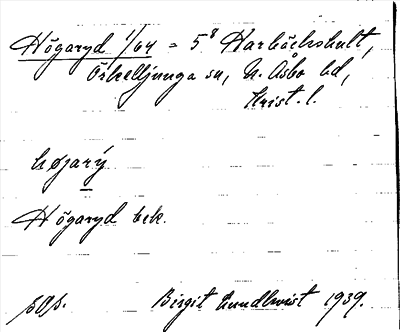 Högaryd 1/64 = 5⁸ Harbäckshult,
Örkelljunga sn, N. Åsbo hd,
Krist. l.
højarý
Högaryd bek.
Birgit Lundkvist 1939.